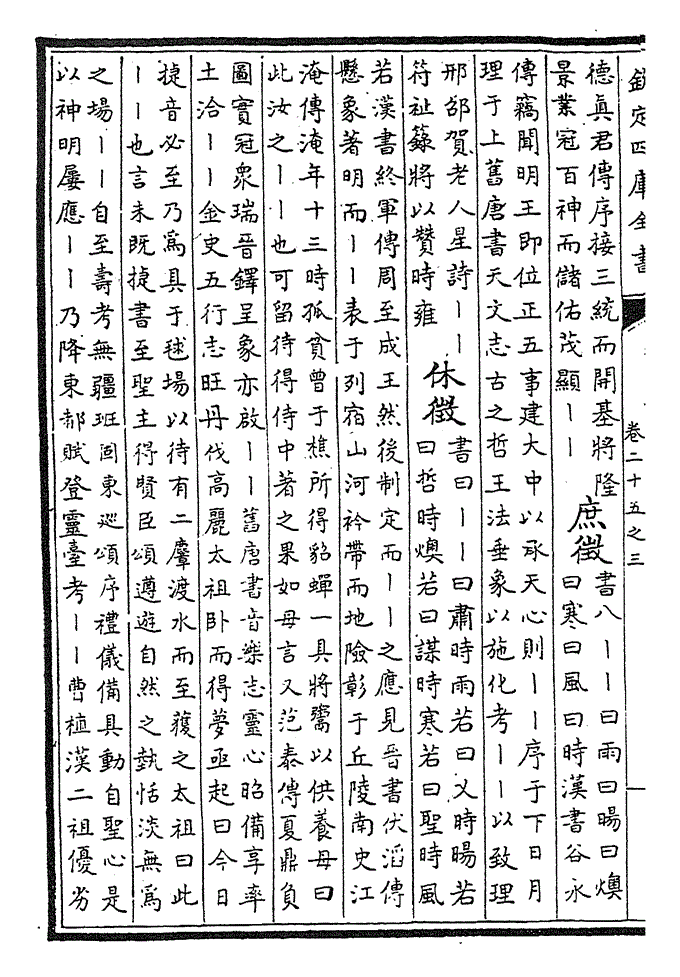 欽定四庫全書
卷二十五之三
德眞君傳序接三統而開基將隆
景業冠百神而儲佑茂顯丨丨
庶徵
書八丨丨曰雨曰暘曰燠
曰寒曰風曰時漢書谷永
傳竊聞明王即位正五事建大中以承天心則丨丨序于下日月
理于上舊唐書天文志古之哲王法垂象以施化考丨丨以致理
邢邵賀老人星詩丨丨
符祉籙將以贊時雍
休徵
書曰丨丨曰肅時雨若曰乂時暘若
曰哲時燠若曰謀時寒若曰聖時風
若漢書終軍傳周至成王然後制定而丨丨之應見晉書伏滔傳
懸象著明而丨丨表于列宿山河衿帶而地險彰于丘陵南史江
淹傳淹年十三時孤貧曾于樵所得貂蟬一具將鬻以供養母曰
此汝之丨丨也可留待得侍中著之果如母言又范泰傳夏鼎負
圖實冠衆瑞晉鐸呈象亦啟丨丨舊唐書音樂志靈心昭備享率
土洽丨丨金史五行志旺丹伐高麗太祖卧而得夢亟起曰今日
捷音必至乃爲具于毬場以待有二麞渡水而至獲之太祖曰此
丨丨也言未旣捷書至聖主得賢臣頌遵遊自然之埶恬淡無爲
之場丨丨自至壽考無疆班固東廵頌序禮儀備具動自聖心是
以神明屢應丨丨乃降東都賦登靈臺考丨丨曹植漢二祖優劣